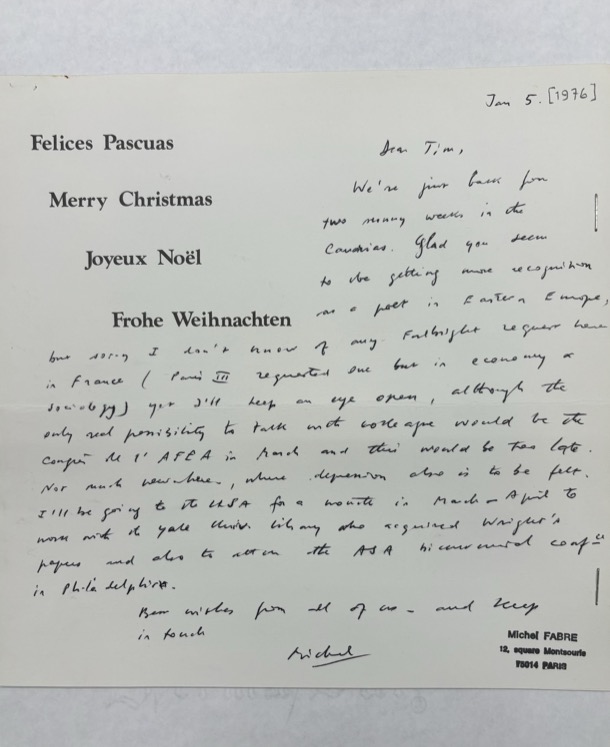 Jan 5. [1976]
Felices Pascuas
Merry Christmas
Joyeux Noël
Frohe Weihnachten
Dear Tim,
We're just back from
two sunny weeks in the
Canaries. Glad you seem
to be getting more recognition
as a poet in Eastern Europe,
but sorry I don't know of any Fulbright request here
in France (Paris III requested one but in economy &
sociology) yet I'll keep an eye open, although the
only real possibility to talk with colleagues would be the
Congrès de l'AFEA in March and this would be too late.
Not much new here, where depression also is to be felt.
I'll be going to the USA for a month in March-April to
work with the Yale Univ. Library who acquired Wright's
papers and also to attend the ASA bicentennial confce
in Philadelphia.
Best wishes from all of us - and keep
in touch
Michel
Michel FABRE
12, square Montsouris
75014 PARIS